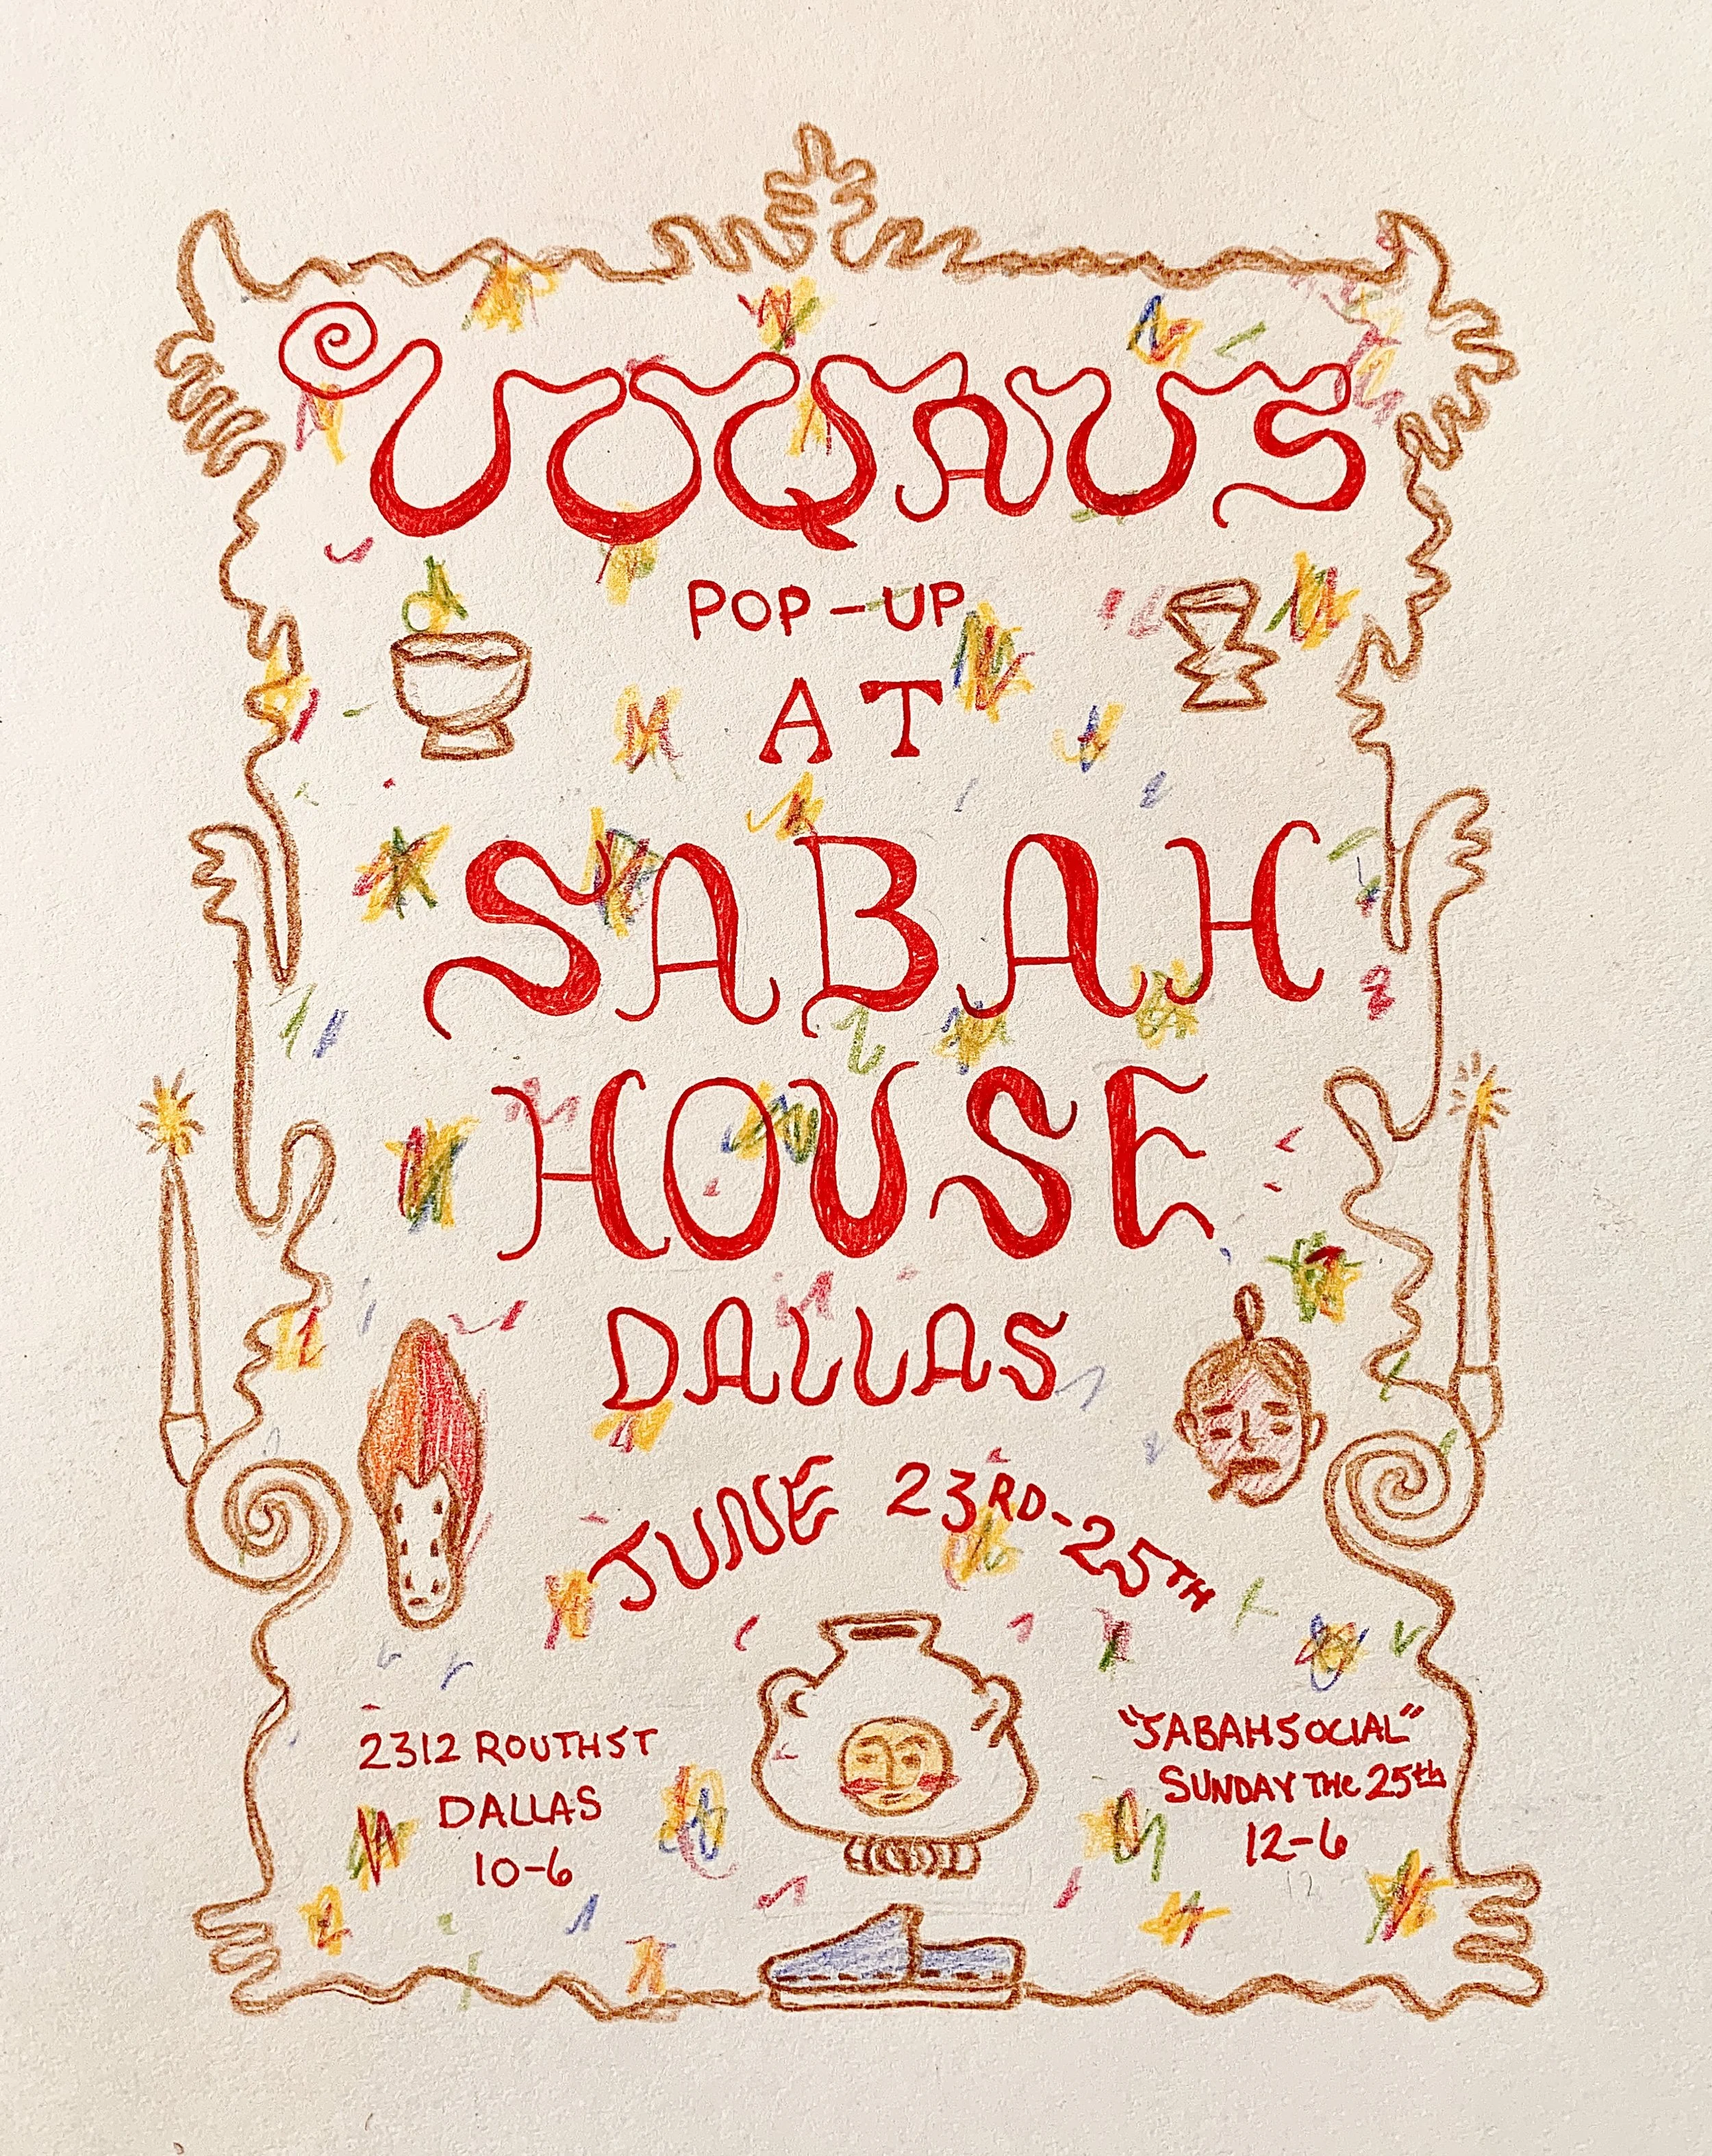 UOQAUS
POP-UP
AT
SABAH
HOUSE
DALLAS
JUNE 23RD-25TH
2312 ROUTH ST
DALLAS
10-6
"SABAH SOCIAL"
SUNDAY THE 25th
12-6
12